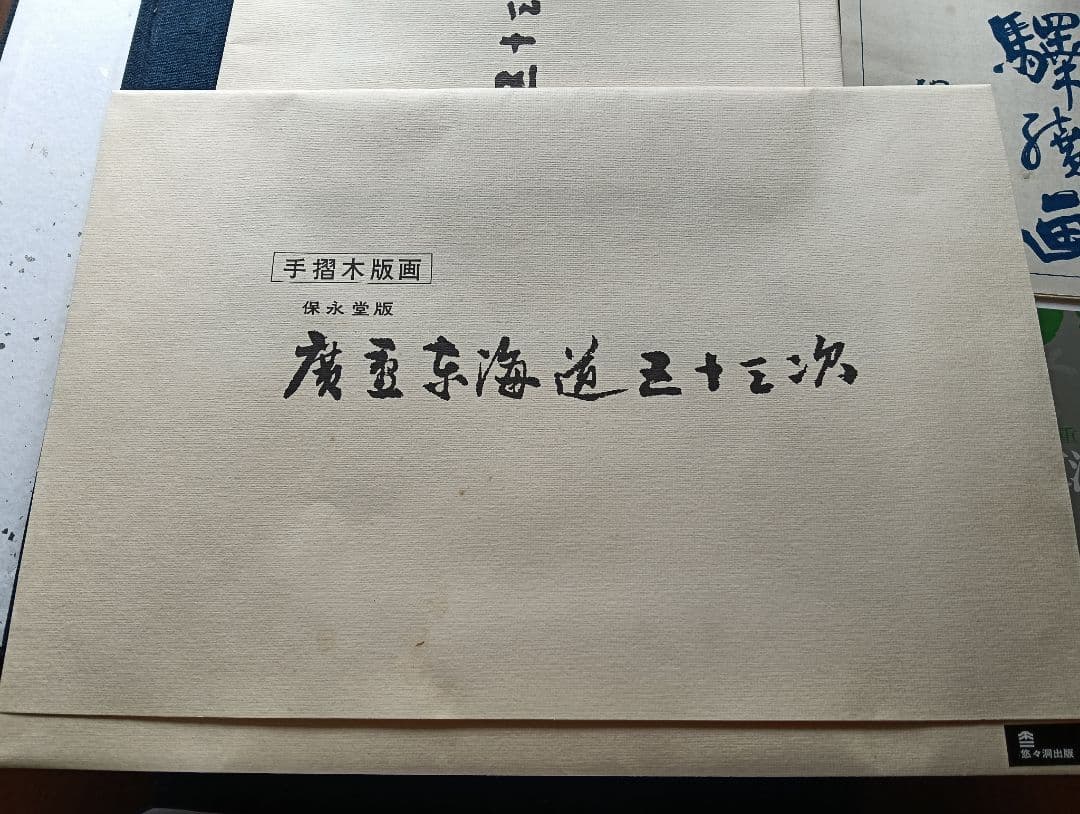 五十三
驛續画
手摺木版画
保永堂版
廣重东海道五十三次
悠々洞出版